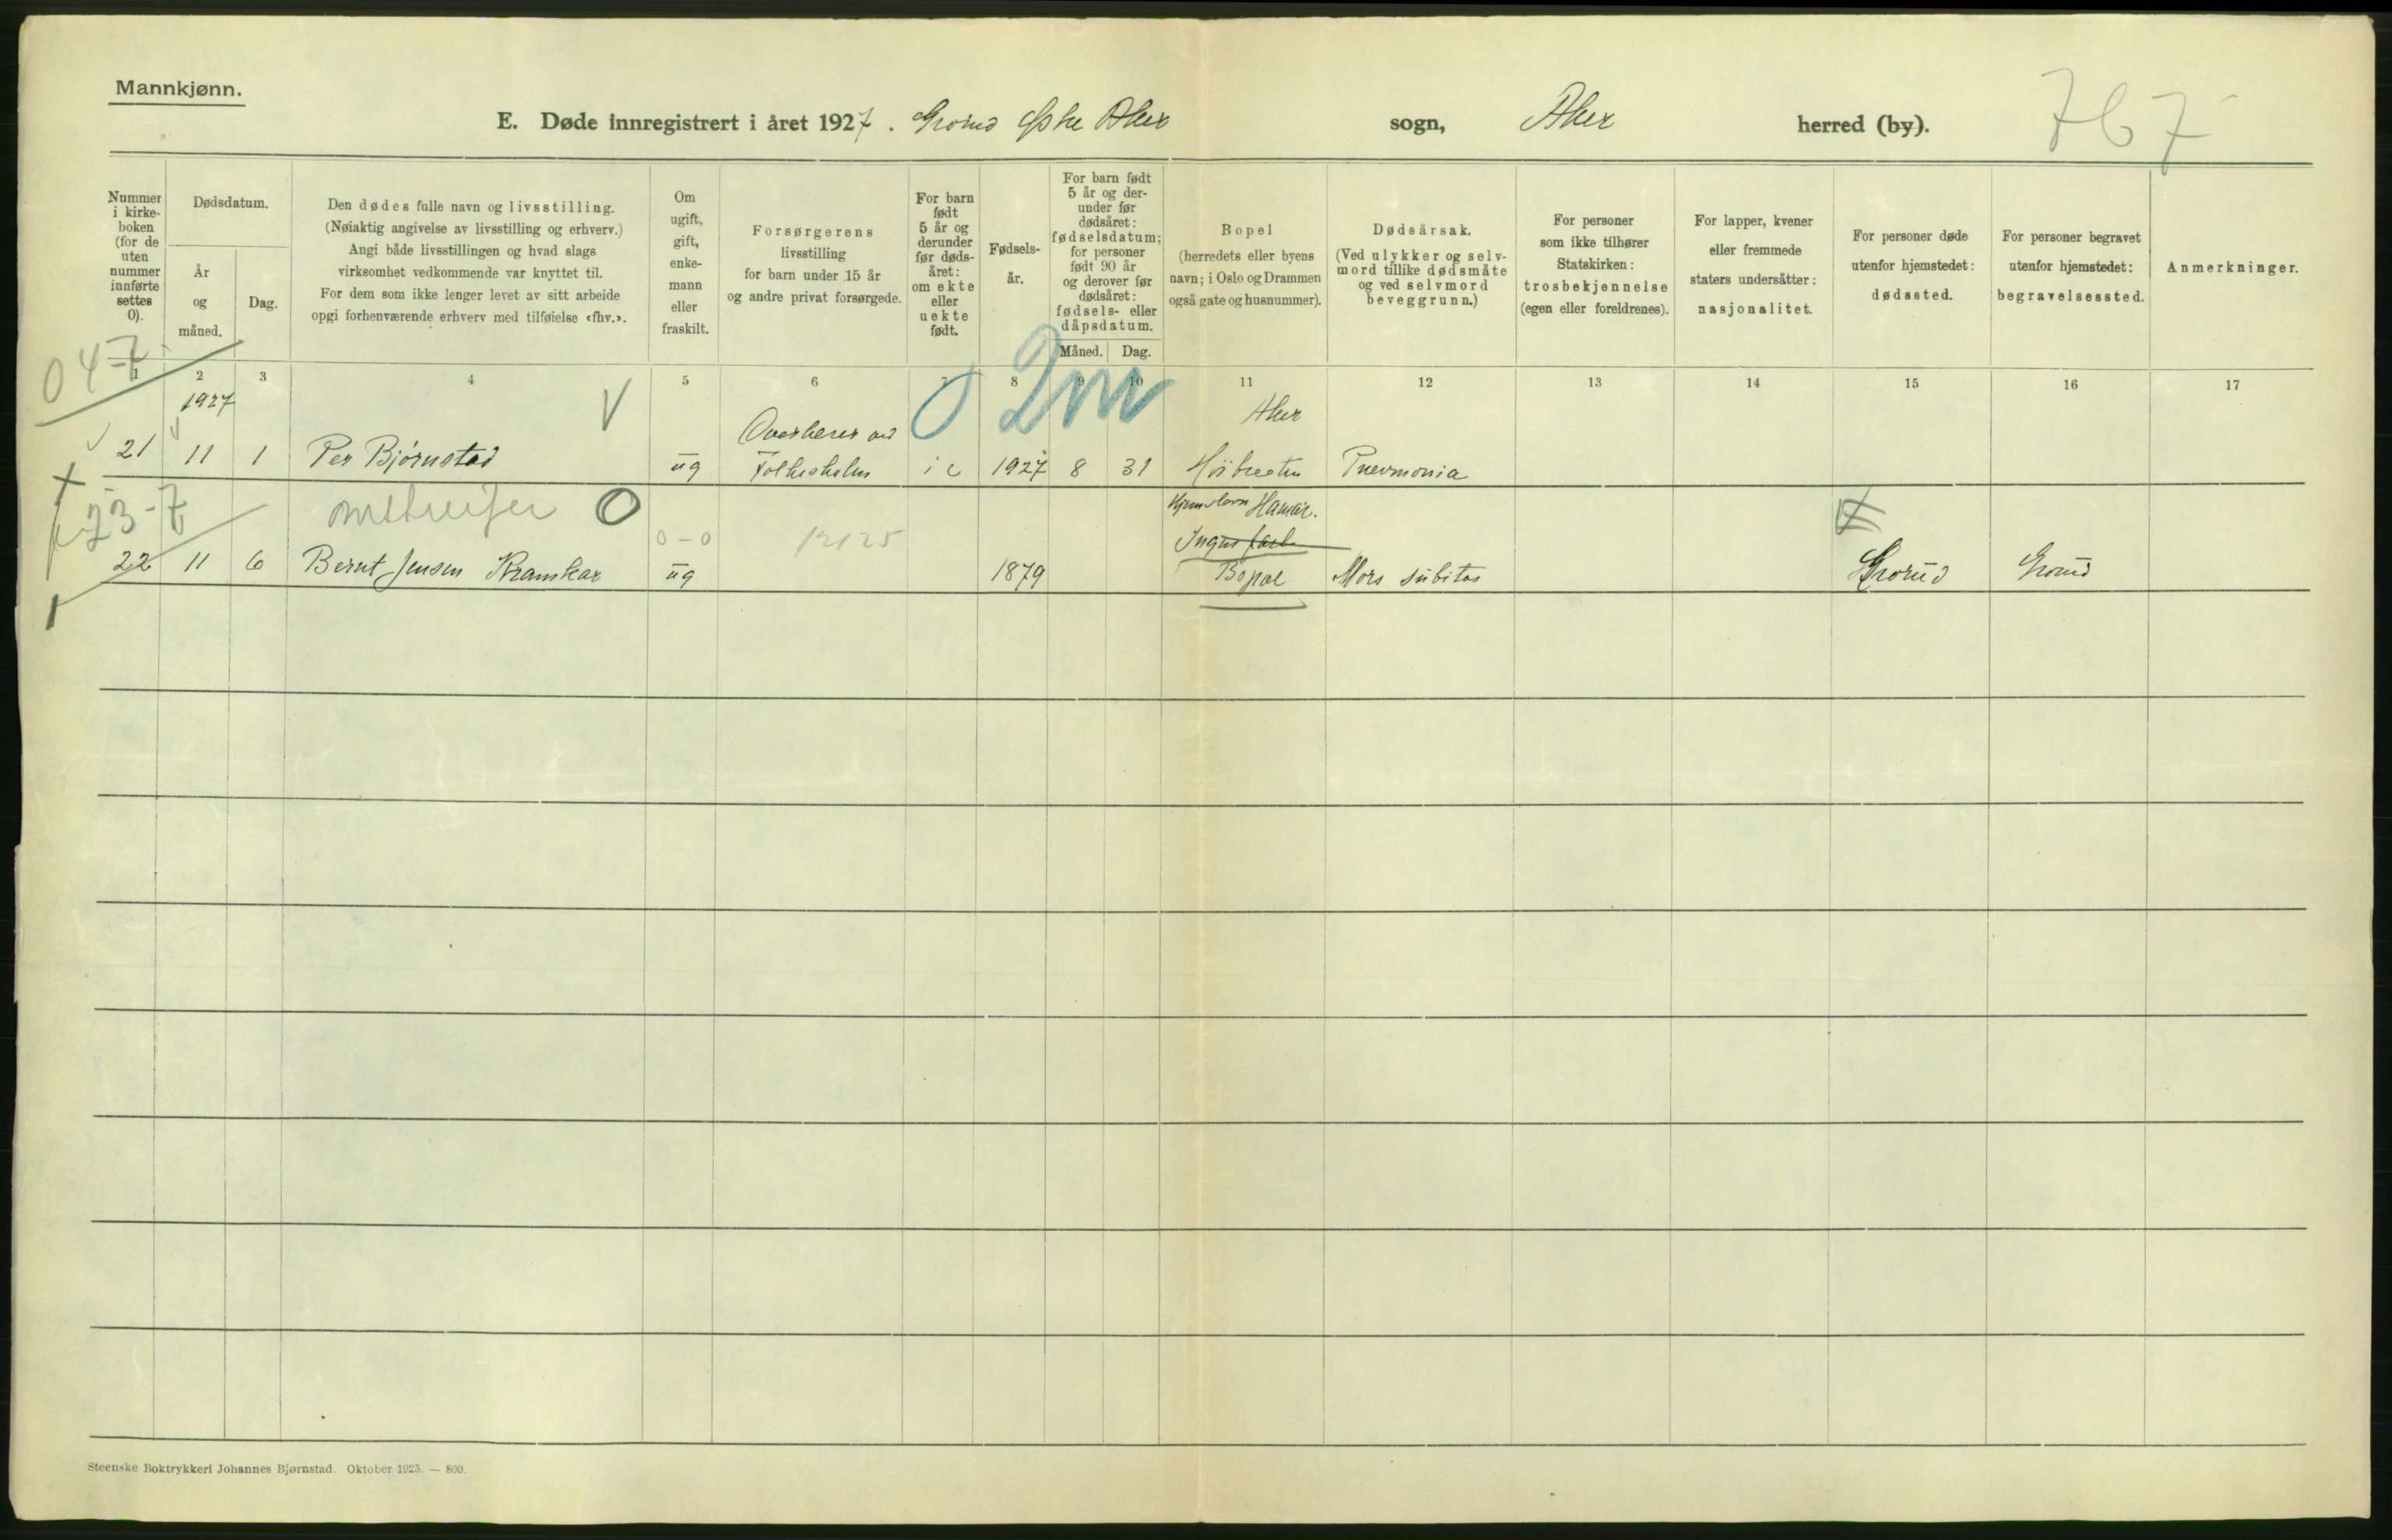 Mannkjønn.
E. Døde innregistrert i året 1927. Grorud Østre Aker sogn, Aker herred (by).
767
Nummer i kirkeboken (for de uten nummer innførte settes 0).
Dødsdatum.
År og måned.
Dag.
Den dødes fulle navn og livsstilling.
(Nøiaktig angivelse av livsstilling og erhverv.)
Angi både livsstillingen og hvad slags
virksomhet vedkommende var knyttet til.
For dem som ikke lenger levet av sitt arbeide
opgi forhenværende erhverv med tilføielse «fhv.».
Om ugift, gift, enkemann eller fraskilt.
Forsørgerens livsstilling
for barn under 15 år
og andre privat forsørgede.
For barn født 5 år og derunder før dødsåret: om ekte eller uekte født.
Fødselsår.
For barn født 5 år og derunder før dødsåret: fødselsdatum; for personer født 90 år og derover før dødsåret: fødsels- eller dåpsdatum.
Måned. Dag.
Bopel
(herredets eller byens
navn; i Oslo og Drammen
også gate og husnummer).
Dødsårsak.
(Ved ulykker og selvmord tillike dødsmåte og ved selvmord beveggrunn.)
For personer
som ikke tilhører
Statskirken:
trosbekjennelse
(egen eller foreldrenes).
For lapper, kvener
eller fremmede
staters undersåtter:
nasjonalitet.
For personer døde
utenfor hjemstedet:
dødssted.
For personer begravet
utenfor hjemstedet:
begravelsessted.
Anmerkninger.
04-7
1 2 3 4 5 6 7 8 9 10 11 12 13 14 15 16 17
1927
2m
Aker
21 11 1 Per Bjørnstad ug 1927 8 31 Pnevmonia
23-7
0-0
12125
Hamar.
22 11 6 Bernt Jensen Kramkar ug 1879 Bopæl Mors subitas Grorud Grorud
Steenske Boktrykkeri Johannes Bjørnstad. Oktober 1925. — 800.